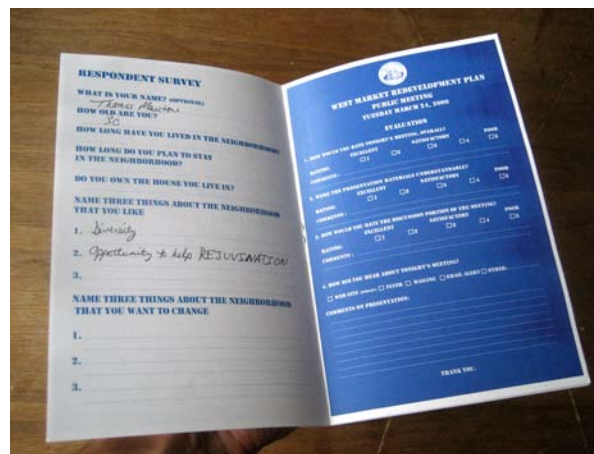 RESPONDENT SURVEY
WHAT IS YOUR NAME? (OPTIONAL)
Thomas
HOW OLD ARE YOU?
HOW LONG HAVE YOU LIVED IN THE NEIGHBORHOOD?
HOW LONG DO YOU PLAN TO STAY
IN THE NEIGHBORHOOD?
DO YOU OWN THE HOUSE YOU LIVE IN?
NAME THREE THINGS ABOUT THE NEIGHBORHOOD
THAT YOU LIKE
1. Diversity
2. Opportunity to help REJUVINATION
3.
NAME THREE THINGS ABOUT THE NEIGHBORHOOD
THAT YOU WANT TO CHANGE
1.
2.
3.
WEST MARKET REDEVELOPMENT PLAN
PUBLIC MEETING
TUESDAY MARCH 24, 2009
EVALUATION
1. HOW WOULD YOU RATE TONIGHT'S MEETING, OVERALL?
EXCELLENT SATISFACTORY POOR
RATING: □1 □2 □3 □4 □5
COMMENTS:
2. WERE THE PRESENTATION MATERIALS UNDERSTANDABLE?
EXCELLENT SATISFACTORY POOR
RATING: □1 □2 □3 □4 □5
COMMENTS:
3. HOW WOULD YOU RATE THE DISCUSSION PORTION OF THE MEETING?
EXCELLENT SATISFACTORY POOR
RATING: □1 □2 □3 □4 □5
COMMENTS:
4. HOW DID YOU HEAR ABOUT TONIGHT'S MEETING?
□ WEB SITE □ FLYER □ MAILING □ EMAIL ALERT □ OTHER:
COMMENTS ON PRESENTATION:
THANK YOU.